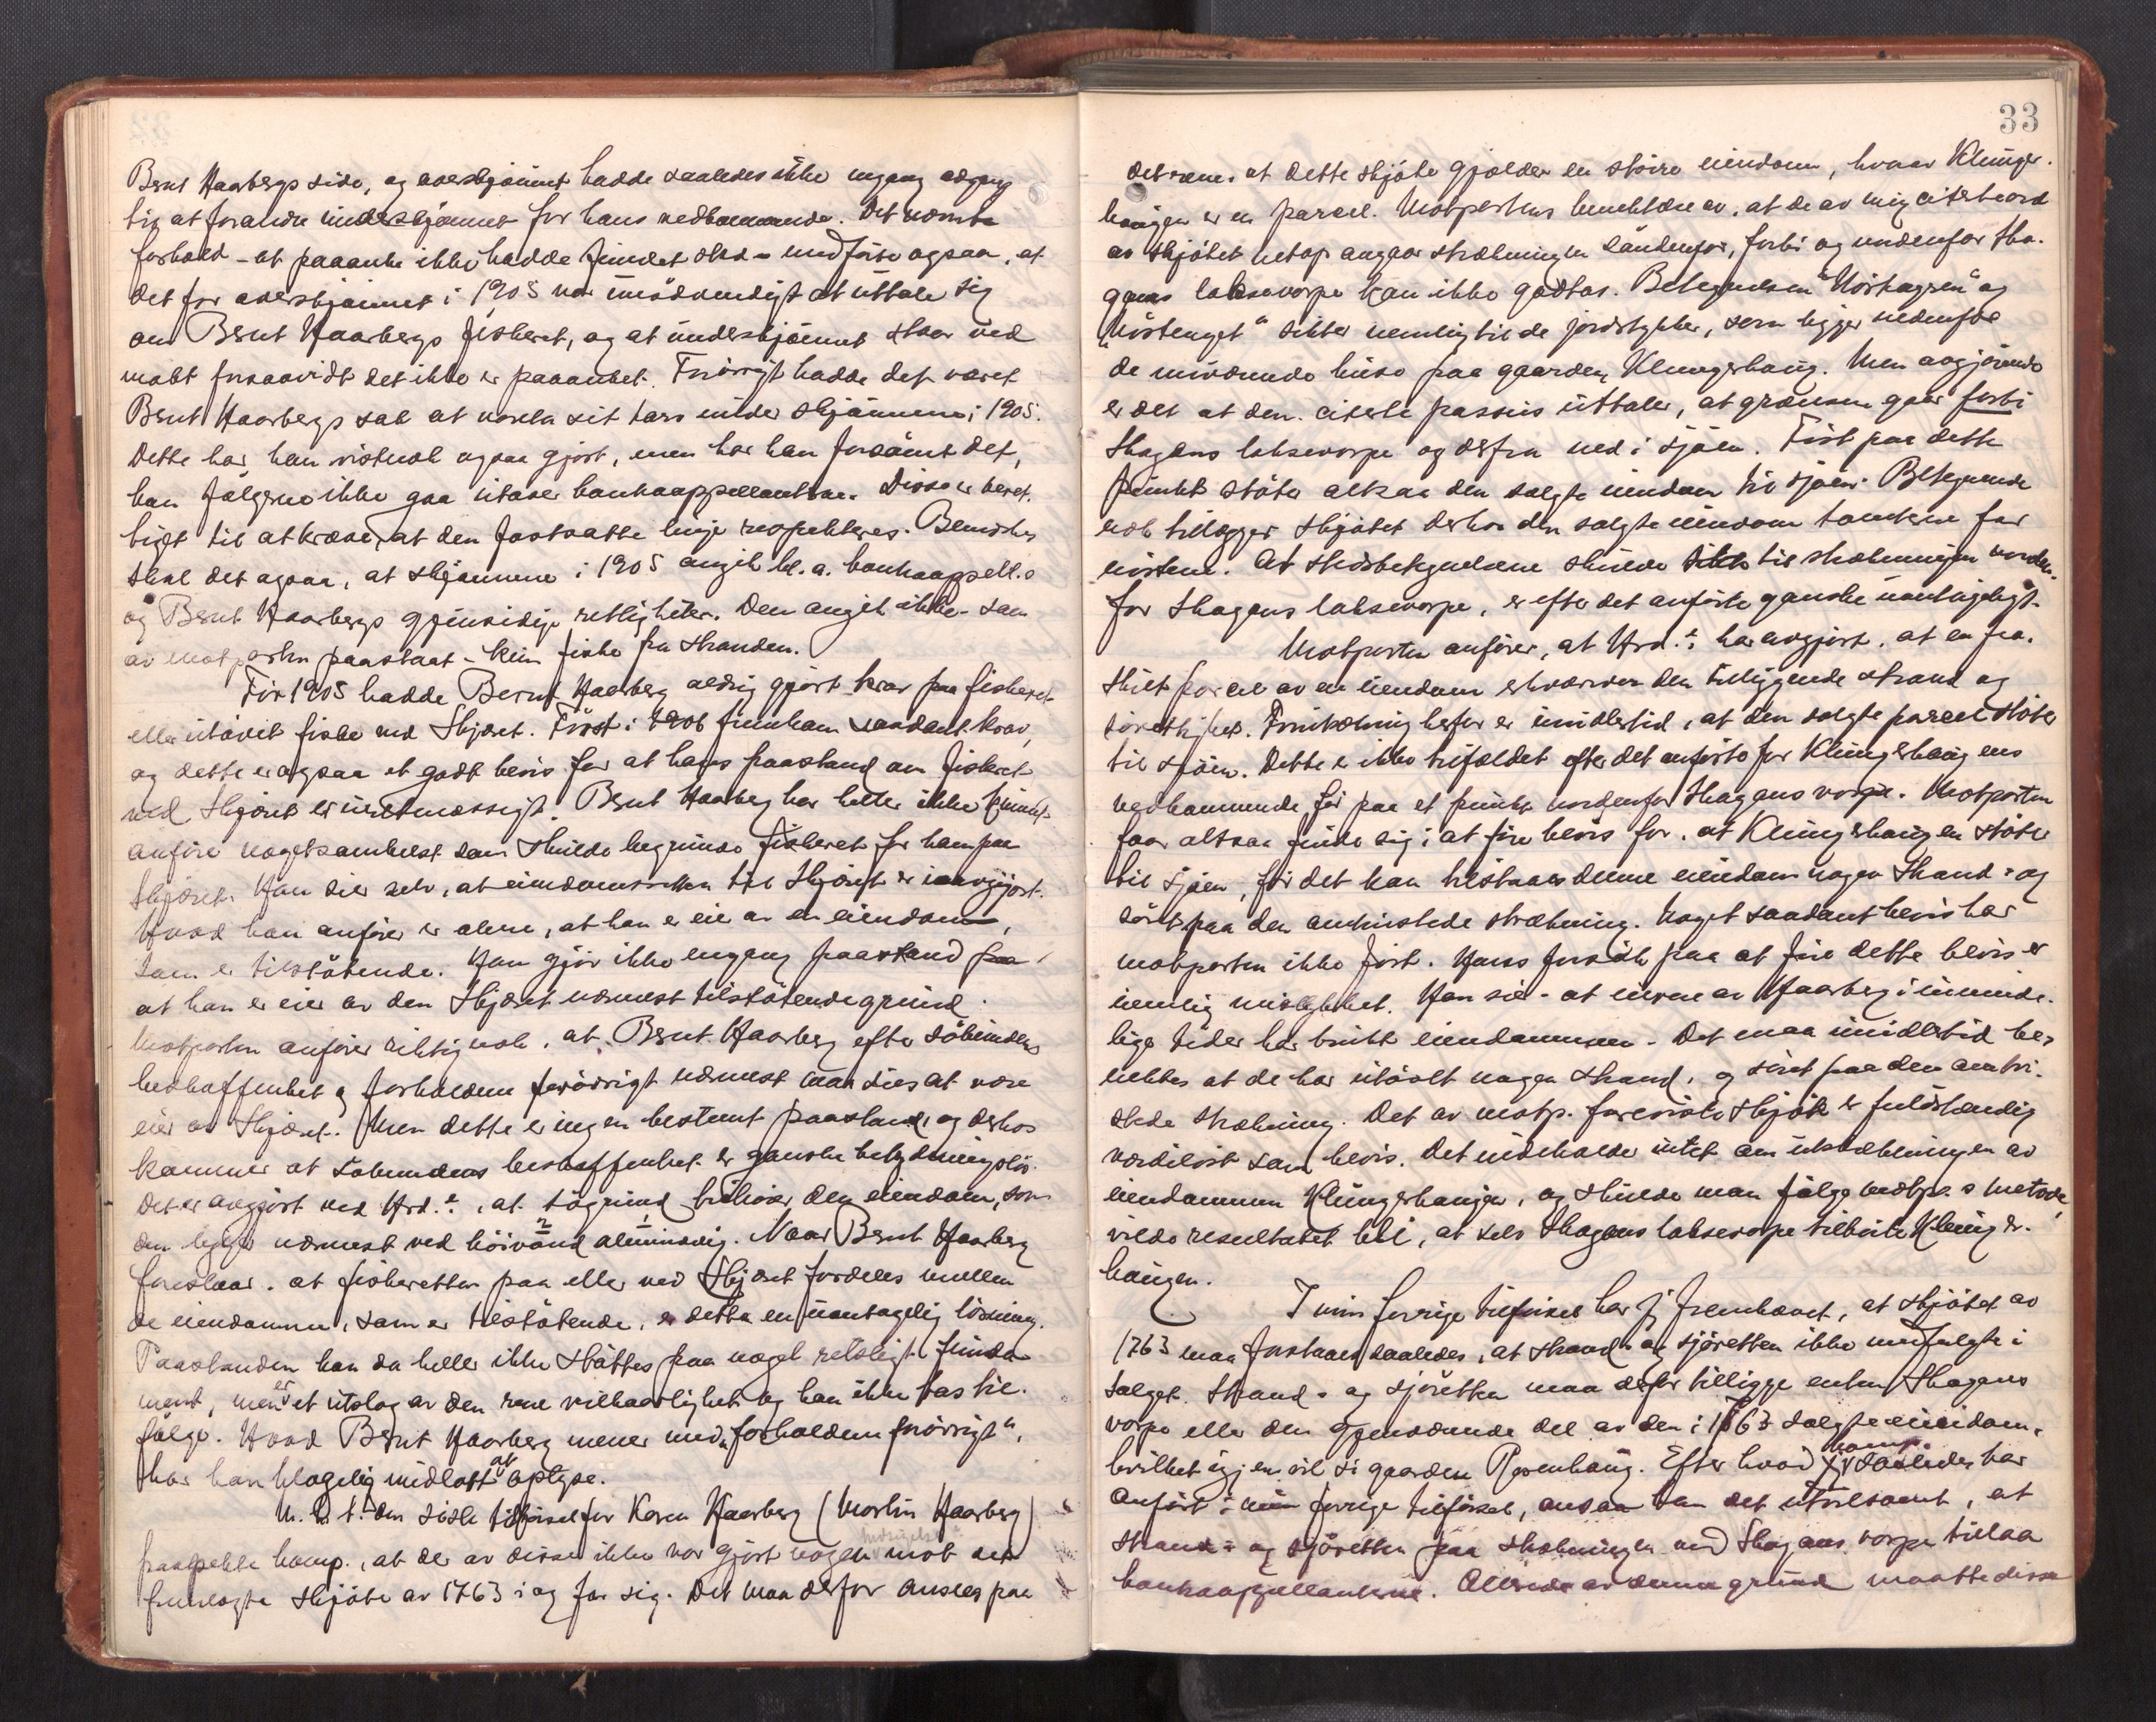 Bent Haarbergs side, og overskjønnet hadde saaledes ikke engang adgang
til at forandre underskjønnet for hans vedkommende. Det nævnte
forhold - at paaanke ikke hadde fundet sted - medførte ogsaa, at
det for overskjønnet i 1905 var unødvendigt at uttale sig
om Bernt Haarbergs fiskeret, og at underskjønnet staar ved
makt forsaavidt det ikke er paaanket. Forøvrigt hadde det været
Bernt Haarbergs sak at vareta sit tarv under skjønnene i 1905.
Dette har han vistnok ogsaa gjort, men har han forsømt det,
kan følgerne ikke gaa utover kontraappellantene. Disse er beret.
tiget til at kræve, at den fastsatte linje respekteres. Bemerkes
skal det ogsaa, at skjønnene i 1905 angik bl. a. kontraappell.s
og Bernt Haarbergs gjensidige rettigheter. Den angik ikke - som
av motparten paastaat - kun fiske fra stranden.
Før 1905 hadde Bernt Haarberg aldrig gjort krav paa fiskeret
eller utøvet fiske ved Skjæret. Først i 1906 fremkom saadant krav,
og dette er ogsaa et godt bevis for at hans paastand om fiskeret
ved Skjæret er uretmæssigt. Bernt Haarberg har heller ikke kunnet
anføre nogetsomhelst som skulde begrunde fiskeret for ham paa
Skjæret. Han sier selv, at eiendomsretten til Skjæret er uavgjort.
Hvad han anfører er alene, at han er eier av en eiendom,
som er tilstøtende. Han gjør ikke engang paastand paa
at han er eier av den Skjæret nærmest tilstøtende grund.
Motparten anfører riktig nok, at Bernt Haarberg efter søbundens
beskaffenhet og forholdene forøvrigt nærmest maa sies at være
eier av Skjæret. Men dette er ingen bestemt paastand, og derhos
kommer at søbundens beskaffenhet er ganske betydningsløs.
Det er avgjort ved Hrd.:, at søgrund tilhører den eiendom, som
den ligger nærmest ved høivand almindelig. Naar Bernt Haarberg
foreslaar, at fiskeretten paa eller ved Skjæret fordeles mellem
de eiendomme, som er tilstøtende, er dette en uantagelig løsning.
Paastanden kan da heller ikke støttes paa noget retsligt funda-
ment, men er et utslag av den rene vilkaarlighet og kan ikke tas til
følge. Hvad Bernt Haarberg mener med „forholdene forøvrigt“,
har han klogelig undlatt at oplyse.
M. h. t. den sidste tilførsel for Karen Haarberg (Martin Haarberg)
paapekte komp., at der av disse ikke var gjort nogen indsigelse mot det
fremlagte skjøte av 1763 i og for sig. Det maa derfor ansees paa
33
det rene, at dette skjøte gjælder en større eiendom, hvorav Klunger-
haugen er en parcel. Motpartens benektelse av, at de av mig citerte ord
av skjøtet netop angaar strækningen søndenfor, forbi og nordenfor Ska-
gens laksevorpe kan ikke godtas. Betegnelsen "Nösthagen" og
"Nöstenget" sikter nemlig til de jordstykker, som ligger nedenfor
de nuværende huse paa gaarden Klungerhaug. Men avgjørende
er det at den citerte passus uttaler, at grænsen gaar forbi
Skagens laksevorpe og derfra ned i sjøen. Først paa dette
punkt støter altsaa den solgte eiendom til sjøen. Betegnende
nok tillægger skjøtet derhos den solgte eiendom tomtene for
nøstene. At stedsbetegnelsene skulde sikte til strækningen norden-
for Skagens laksevorpe, er efter det anførte ganske uantageligt.
Motparten anfører, at Hrd.: har avgjort, at en fra-
skilt parcel av en eiendom erhverver den tilliggende strand og
sørettighet. Forutsætning herfor er imidlertid, at den solgte parcel støter
til sjøen. Dette er ikke tilfældet efter det anførte for Klungerhaugens
vedkommende før paa et punkt nordenfor Skagens vorpe. Motparten
faar altsaa finde sig i at føre bevis for, at Klungerhaugen støter
til sjøen, før det kan tilstaaes denne eiendom nogen strand- og
søret paa den omtvistede strækning. Noget saadant bevis har
motparten ikke ført. Hans forsøk paa at føre dette bevis er
nemlig mislykket. Han sier - at eierne av Haarberg i uminde-
lige tider har brukt eiendommen - Det maa imidlertid be-
nektes at de har utøvet nogen strand, og søret paa den omtvi-
stede strækning. Det av motp. foreviste skjøte er fuldstændig
værdiløst som bevis. Det indeholder intet om utstrækningen av
eiendommen Klungerhaugen, og skulde man følge motp.s metode,
vilde resultatet bli, at selv Skagens laksevorpe tilhørte Klunger-
haugen.
I min forrige tilførsel har jeg fremhævet, at skjøtet av
1763 maa forstaaes saaledes, at strand- og sjøretten ikke medfulgte i
salget. Strand- og sjøretten maa derfor tilligge enten Skagens
vorpe eller den gjenværende del av den i 1763 solgte eiendom,
hvilket igjen vil si gaarden Rosenhaug. Efter hvad komp. saaledes har
anført i min forrige tilførsel, ansaa han det utvilsomt, at
strand- og sjøretten paa strækningen ved Skagens vorpe tillaa
kontraappellanterne. Allerede av denne grund maatte disse